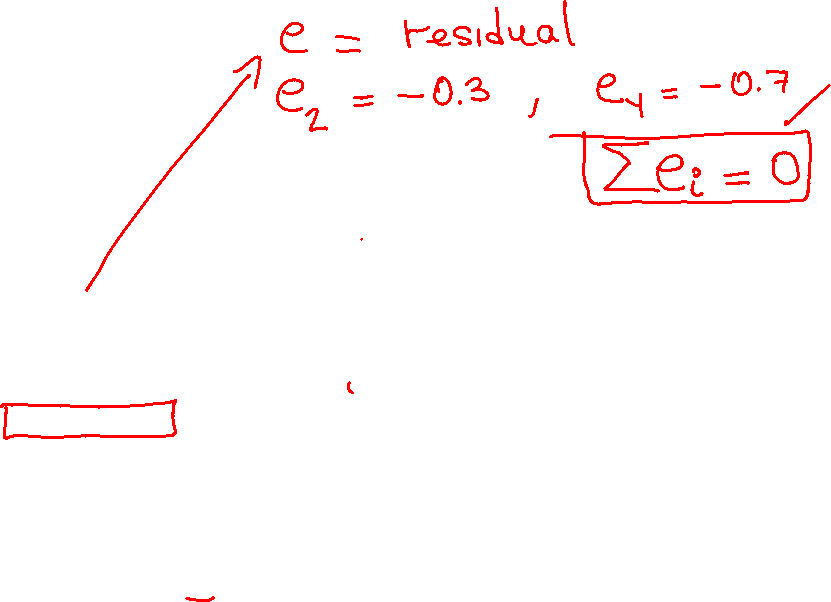 e = residual
e₂ = -0.3 , e₄ = -0.7
Σeᵢ = 0